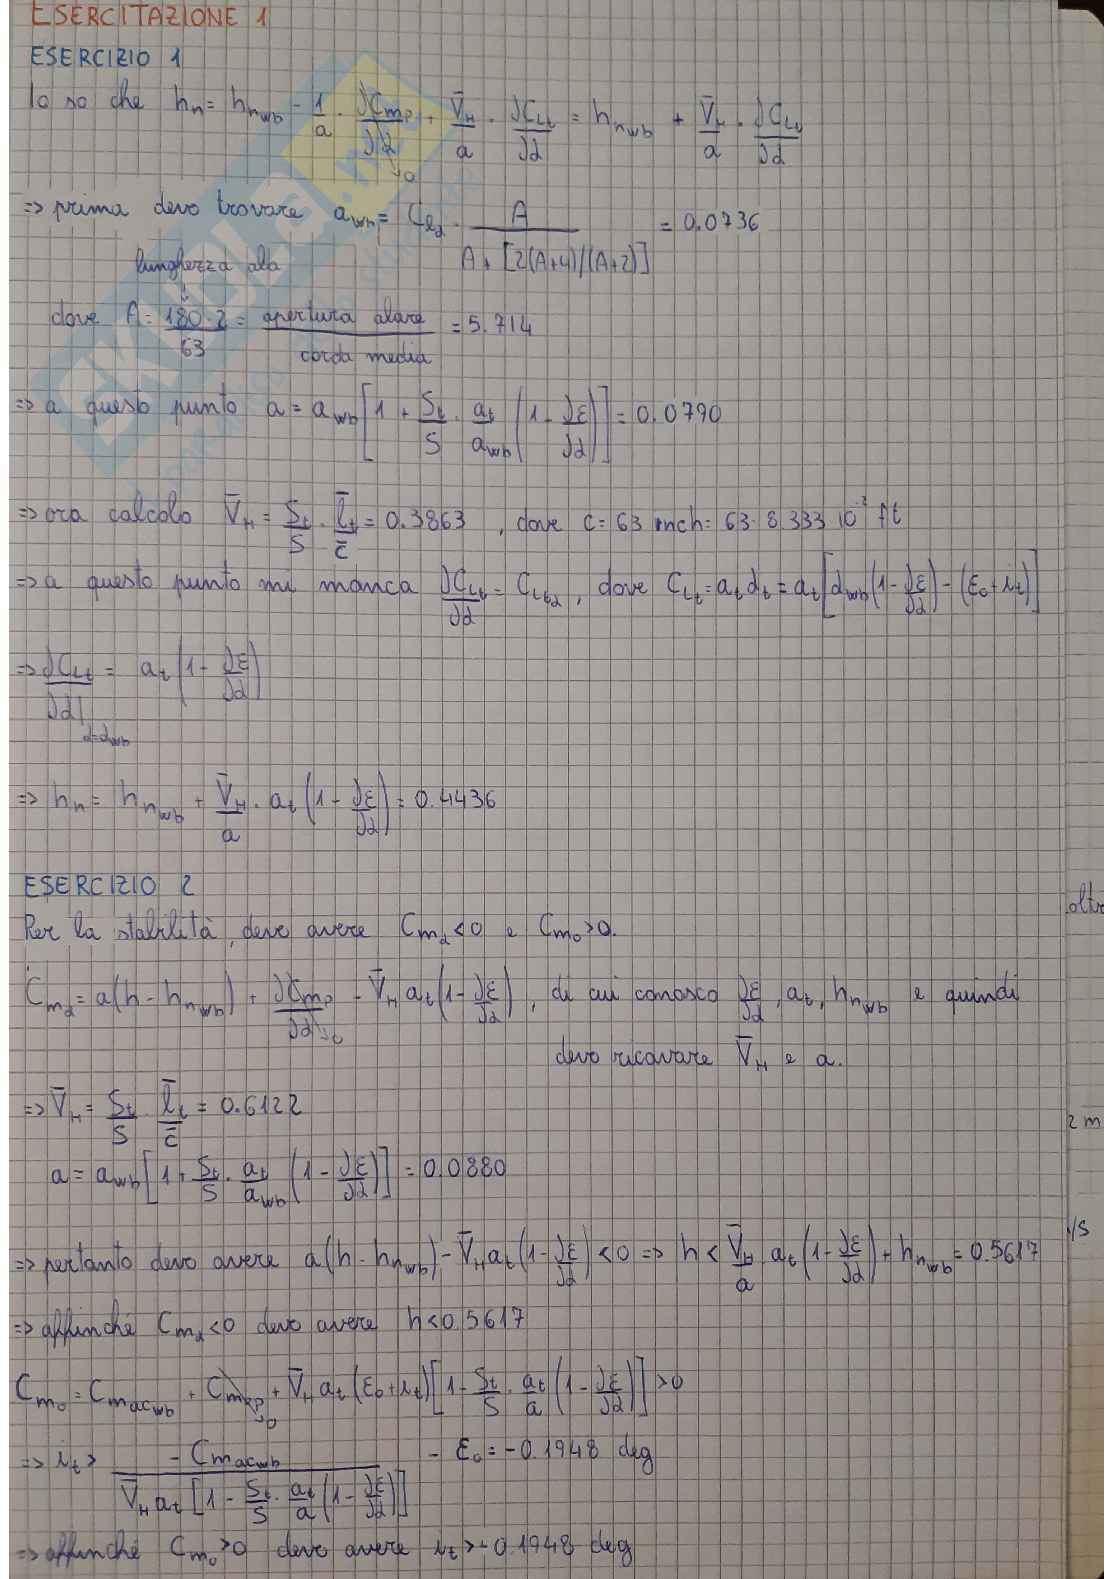 ESERCITAZIONE 1
ESERCIZIO 1
Io so che hn = hnwb - 1/a · ∂Cmp/∂α + V̄H/a · ∂CLt/∂α = hnwb + V̄H/a · ∂CLt/∂α
→0
=> prima devo trovare awb = Clα · A / (A + [2(A+4)/(A+2)]) = 0.0736
lunghezza ala
↓
dove A = 180·2/63 = apertura alare/corda media = 5.714
=> a questo punto a = awb [1 + St/S · at/awb (1 - ∂ε/∂α)] = 0.0790
=> ora calcolo V̄H = St/S · l̄t/c̄ = 0.3863, dove c = 63 inch = 63 · 8.333 10⁻² ft
=> a questo punto mi manca ∂CLt/∂α = CLtα, dove CLt = at αt = at [αwb (1 - ∂ε/∂α) - (ε0 + it)]
=> ∂CLt/∂α| α=αwb = at (1 - ∂ε/∂α)
=> hn = hnwb + V̄H/a · at (1 - ∂ε/∂α) = 0.4436
ESERCIZIO 2
Per la stabilità, deve avere Cmα < 0 e Cm0 > 0.
Cmα = a(h - hnwb) + ∂Cmp/∂α →0 - V̄H at (1 - ∂ε/∂α), di cui conosco ∂ε/∂α, at, hnwb e quindi
devo ricavare V̄H e a.
=> V̄H = St/S · l̄t/c̄ = 0.6122
a = awb [1 + St/S · at/awb (1 - ∂ε/∂α)] = 0.0880
=> pertanto devo avere a(h - hnwb) - V̄H at (1 - ∂ε/∂α) < 0 => h < V̄H/a at (1 - ∂ε/∂α) + hnwb = 0.5617
=> affinché Cmα < 0 devo avere h < 0.5617
Cm0 = Cmacwb + Cm0p →0 + V̄H at (ε0 + it) [1 - St/S · at/a (1 - ∂ε/∂α)] > 0
=> it > -Cmacwb / (V̄H at [1 - St/S · at/a (1 - ∂ε/∂α)]) - ε0 = -0.1948 deg
=> affinché Cm0 > 0 devo avere it > -0.1948 deg